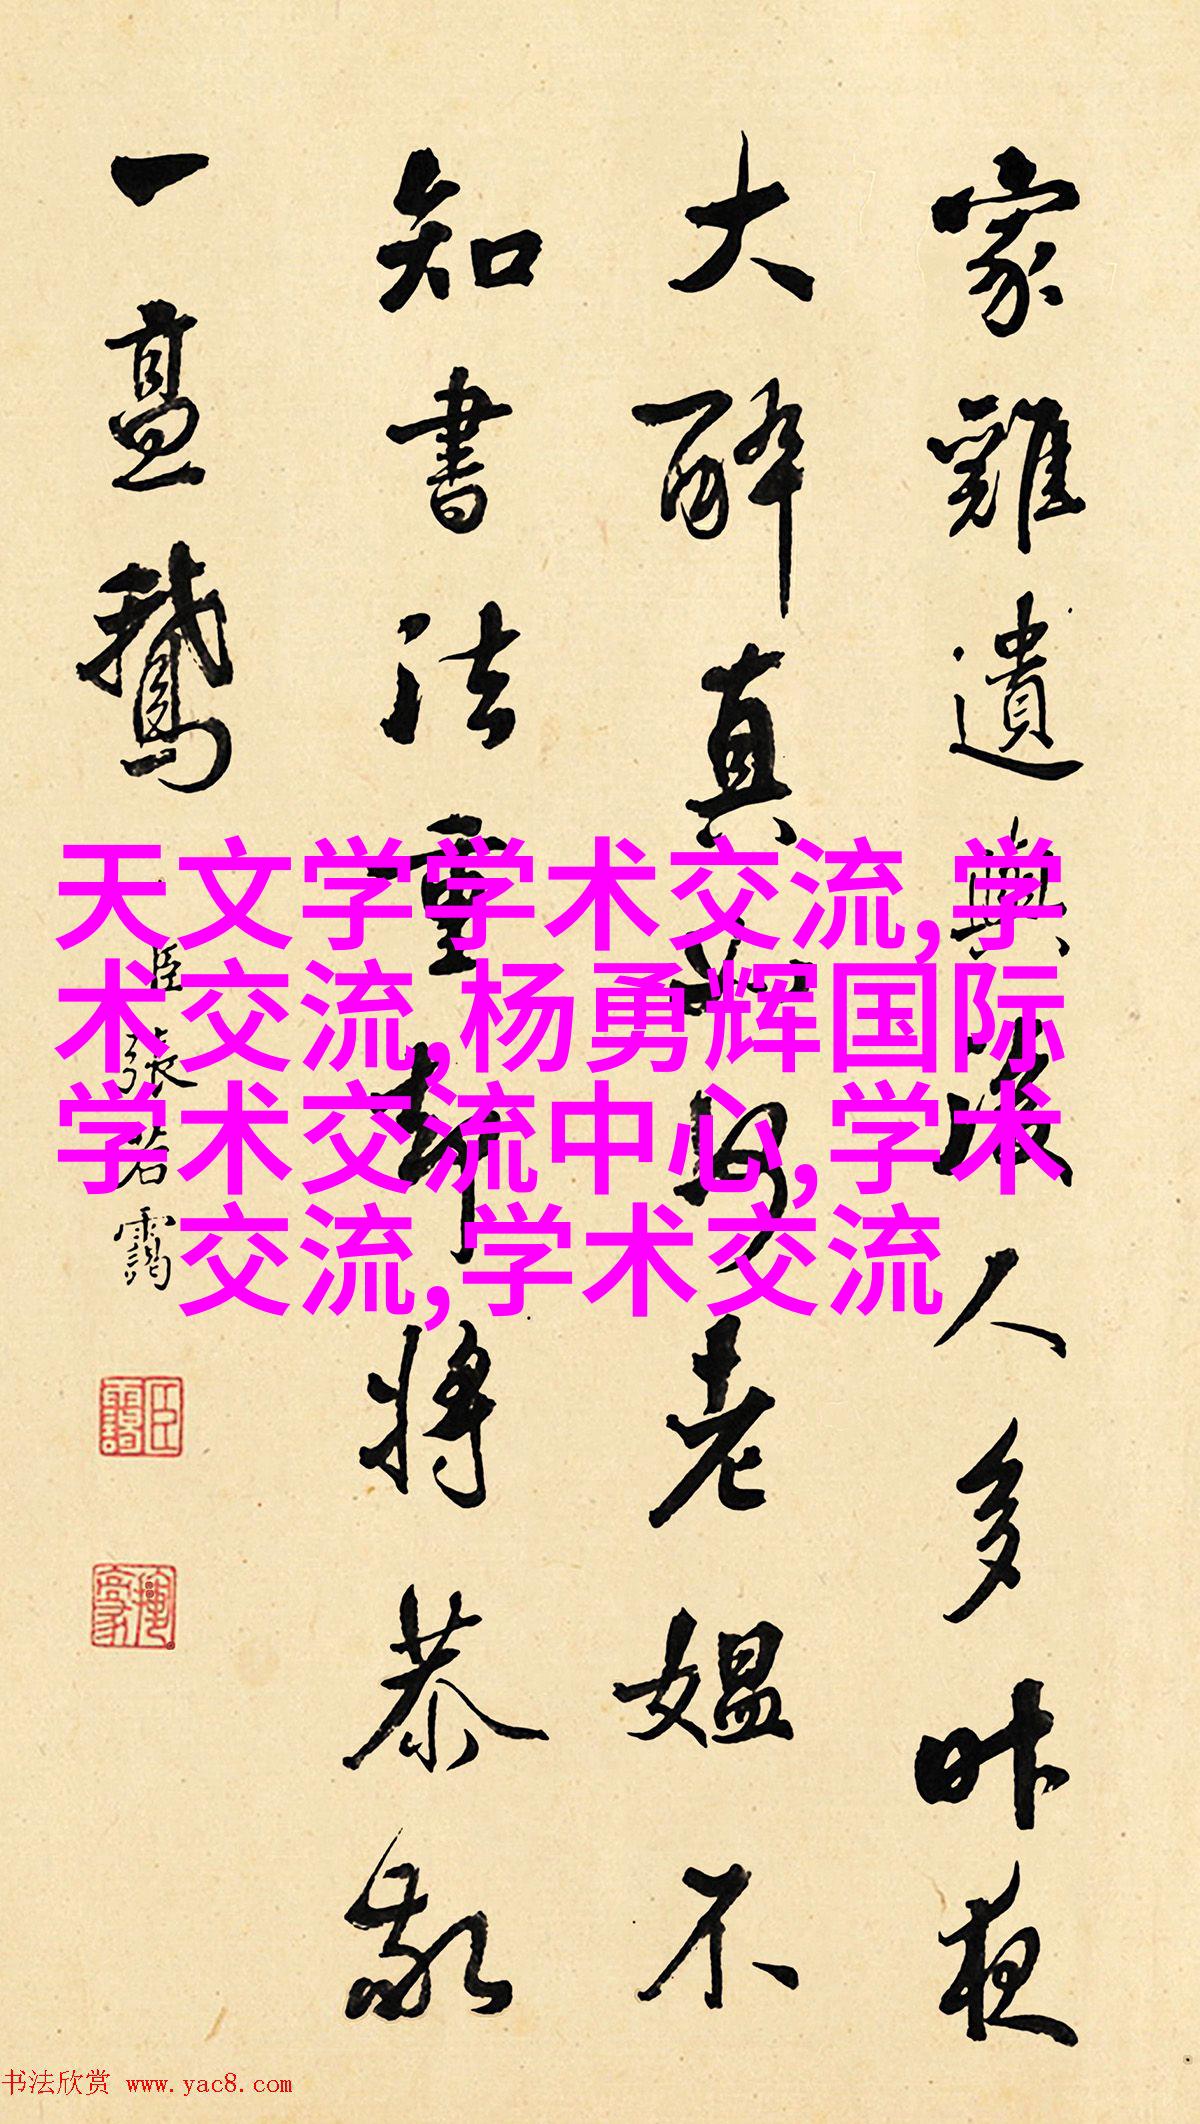 家雞遺與後人多昨夜
大醉真如何老媼不
知書法重却將恭敬
一鵝
臣張若靄
天文学学术交流,学
术交流,杨勇辉国际
学术交流中心,学术
交流,学术交流
书法欣赏 www.yac8.com